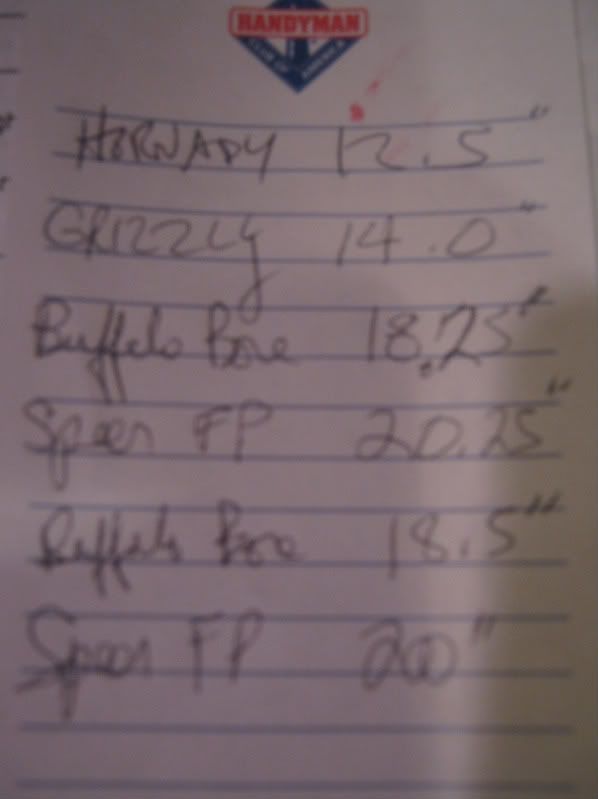 HANDYMAN
CLUB OF AMERICA
HORNADY 12.5"
GRIZZLY 14.0"
Buffalo Bore 18.75"
Speer FP 20.25"
Buffalo Bore 18.5"
Speer FP 20"